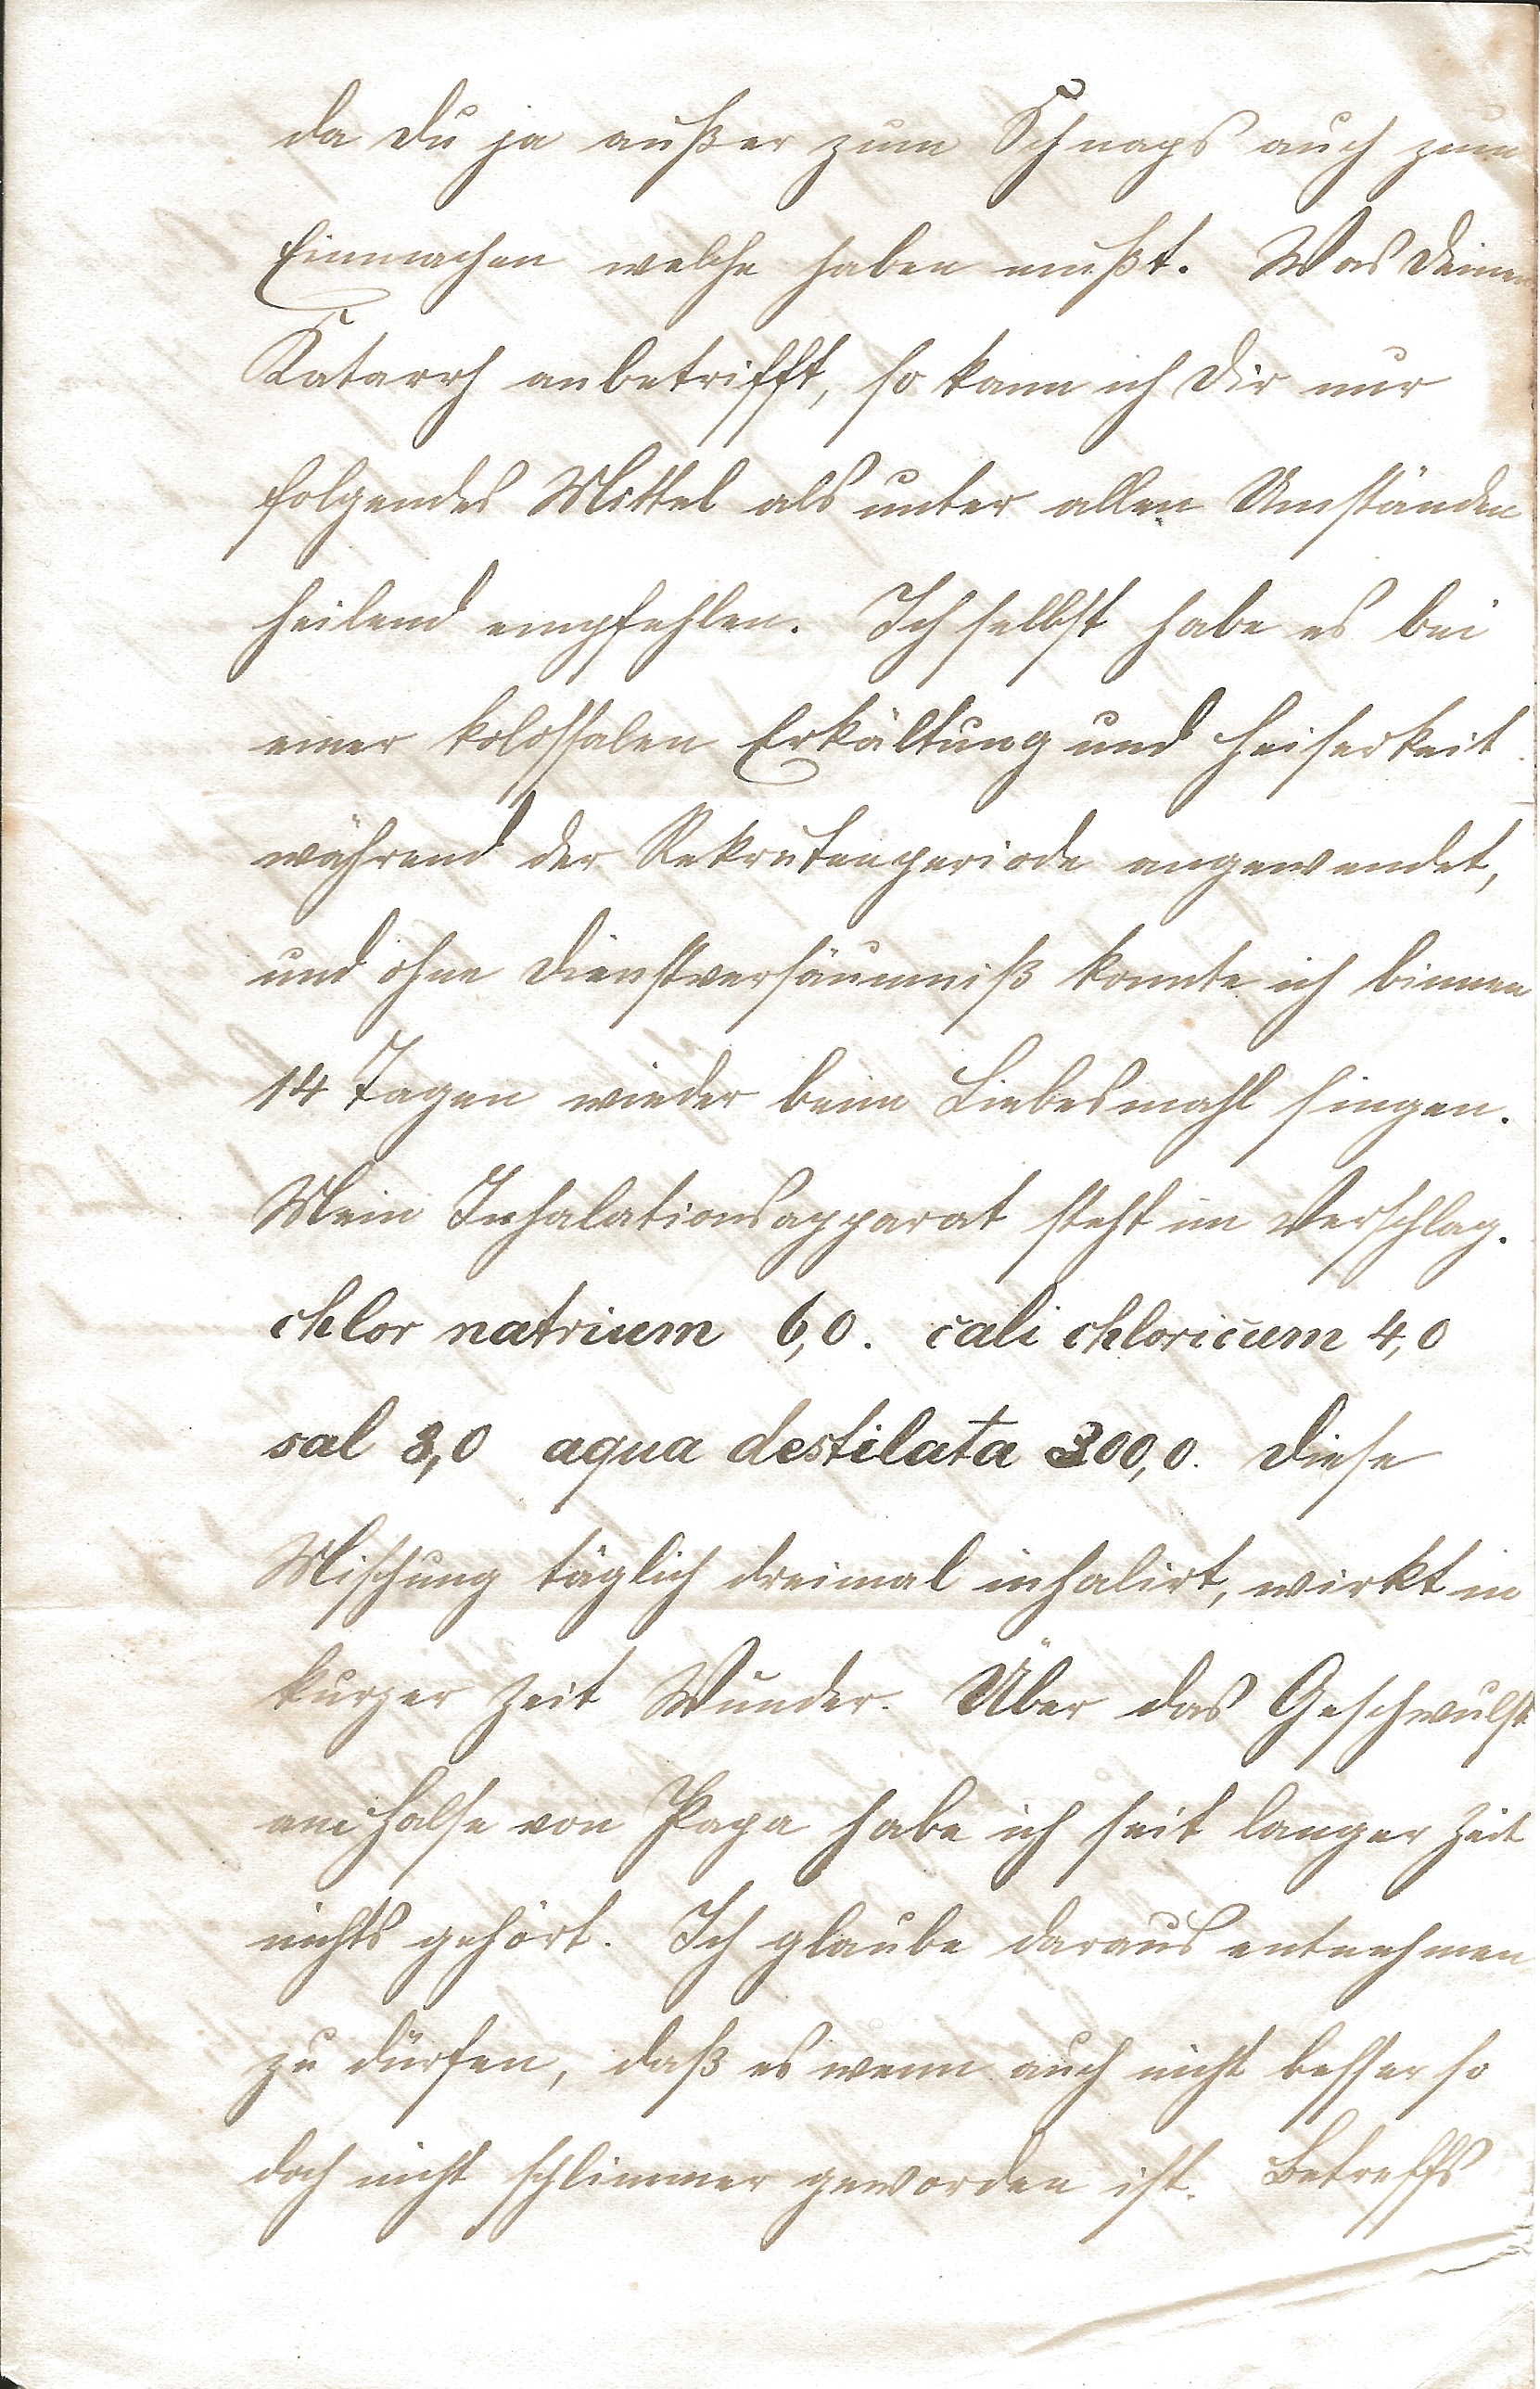 da Du ja außer zum Schnaps auch zum
Einmachen welche haben mußt. Was Deinen
Katarrh anbetrifft, so kann ich Dir nur
folgendes Mittel als unter allen Umständen
heilend empfehlen. Ich selbst habe es bei
einer kolossalen Erkältung und Heiserkeit
während der Rekrutenperiode angewendet,
und ohne Dienstversäumniß konnte ich binnen
14 Tagen wieder beim Liebesmahl singen.
Mein Inhalationsapparat steht im Verschlag.
chlor natrium 6,0. cali chloricum 4,0
sal 3,0 aqua destilata 300,0. Diese
Mischung täglich dreimal inhalirt, wirkt in
kurzer Zeit Wunder. Über das Geschwulst
am Halse von Papa habe ich seit langer Zeit
nichts gehört. Ich glaube daraus entnehmen
zu dürfen, daß es wenn auch nicht besser so
doch nicht schlimmer geworden ist. Betreffs